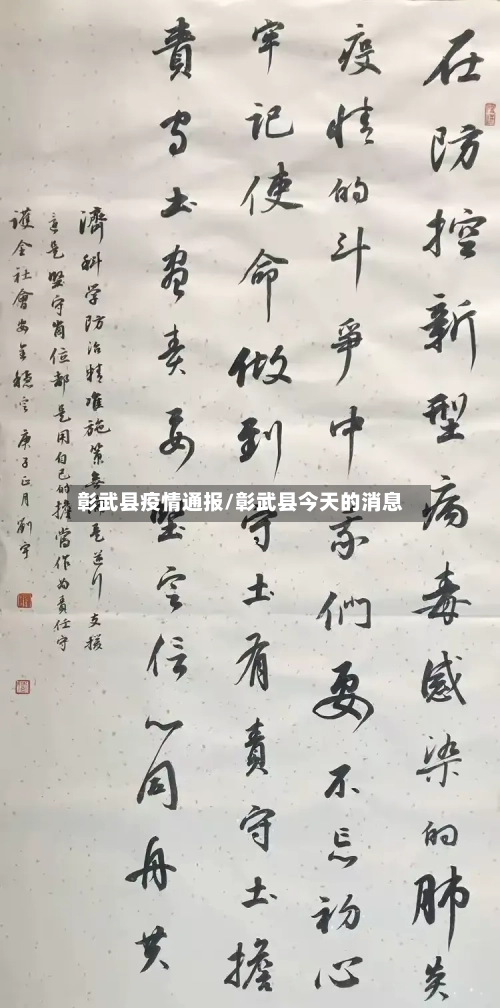 在防控新型病毒感染的肺炎
疫情的斗争中我们要不忘初心
牢记使命做到守土有责守土擔
責守土尽责要坚定信心同舟共
濟科学防治精准施策 支援
守是坚守岗位都是用自己的擔當作为責任守
護全社會安全穩定 庚子正月 刘宇
彰武县疫情通报/彰武县今天的消息